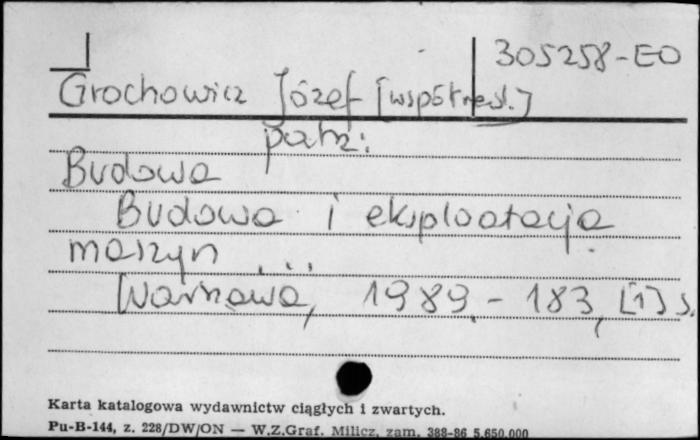 305258-EO
Grochowicz Józef [współred.]
patrz:
Budowa
Budowa i eksploatacja
maszyn ...
Warszawa, 1989.- 183, [1] s.
Karta katalogowa wydawnictw ciągłych i zwartych.
Pu-B-144, z. 228/DW/ON — W.Z.Graf. Milicz, zam. 388-86 5.650.000